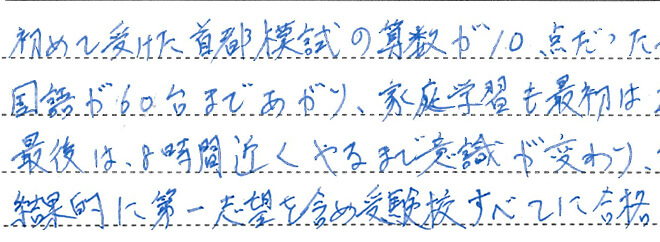 初めて受けた首都模試の算数が10点だった
国語が60台まであがり、家庭学習も最初は
最後は、8時間近くやるまで意識が変わり、
結果的に第一志望を含め受験校すべてに合格